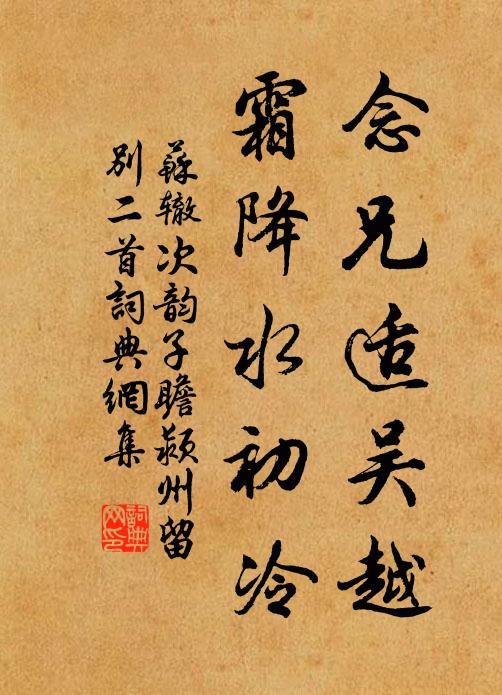 念兄适吴越
霜降水初冷
蘇辙次韵子瞻颍州留
别二首詞典網集
詞典
网印